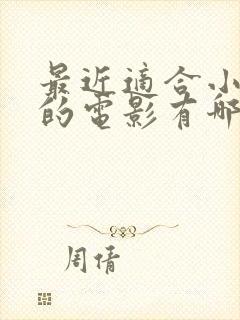 最近適合小
的電影有哪
周倩